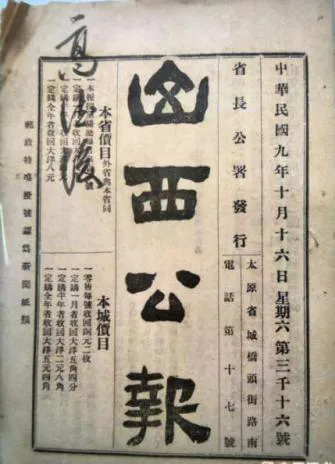 中華民國九年十月十六日星期六第三千十六號
省長公署發行
太原省城橋頭街路南
電話第十七號
山西公報
本省價目外省與本省同
一定購全年者收回大洋八元
本城價目
一零售每號收回銅元二枚
一定購一月者收回大洋五角四分
一定購半年者收回大洋二元八角
一定購全年者收回大洋五元四角
郵政特准掛號認爲新聞紙類